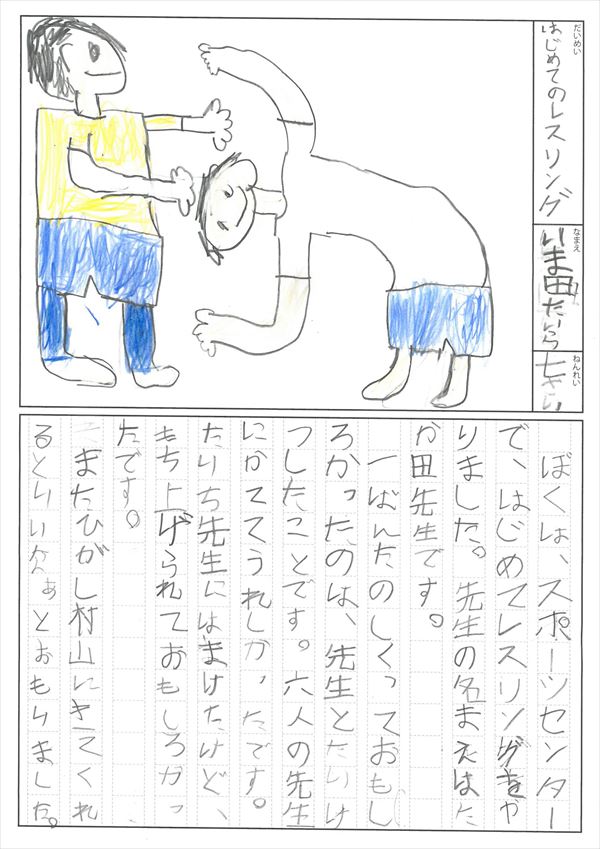 だいめい
はじめてのレスリング
なまえ
いま田たいら
ねんれい
七さい
ぼくは、スポーツセンター
で、はじめてレスリングをや
りました。先生の名まえはた
か田先生です。
一ばんたのしくっておもし
ろかったのは、先生とたいけ
つしたことです。六人の先生
にかててうれしかったです。
たいち先生にはまけたけど、
もち上げられておもしろかっ
たです。
またひがし村山にきてくれ
るといいなぁとおもいました。